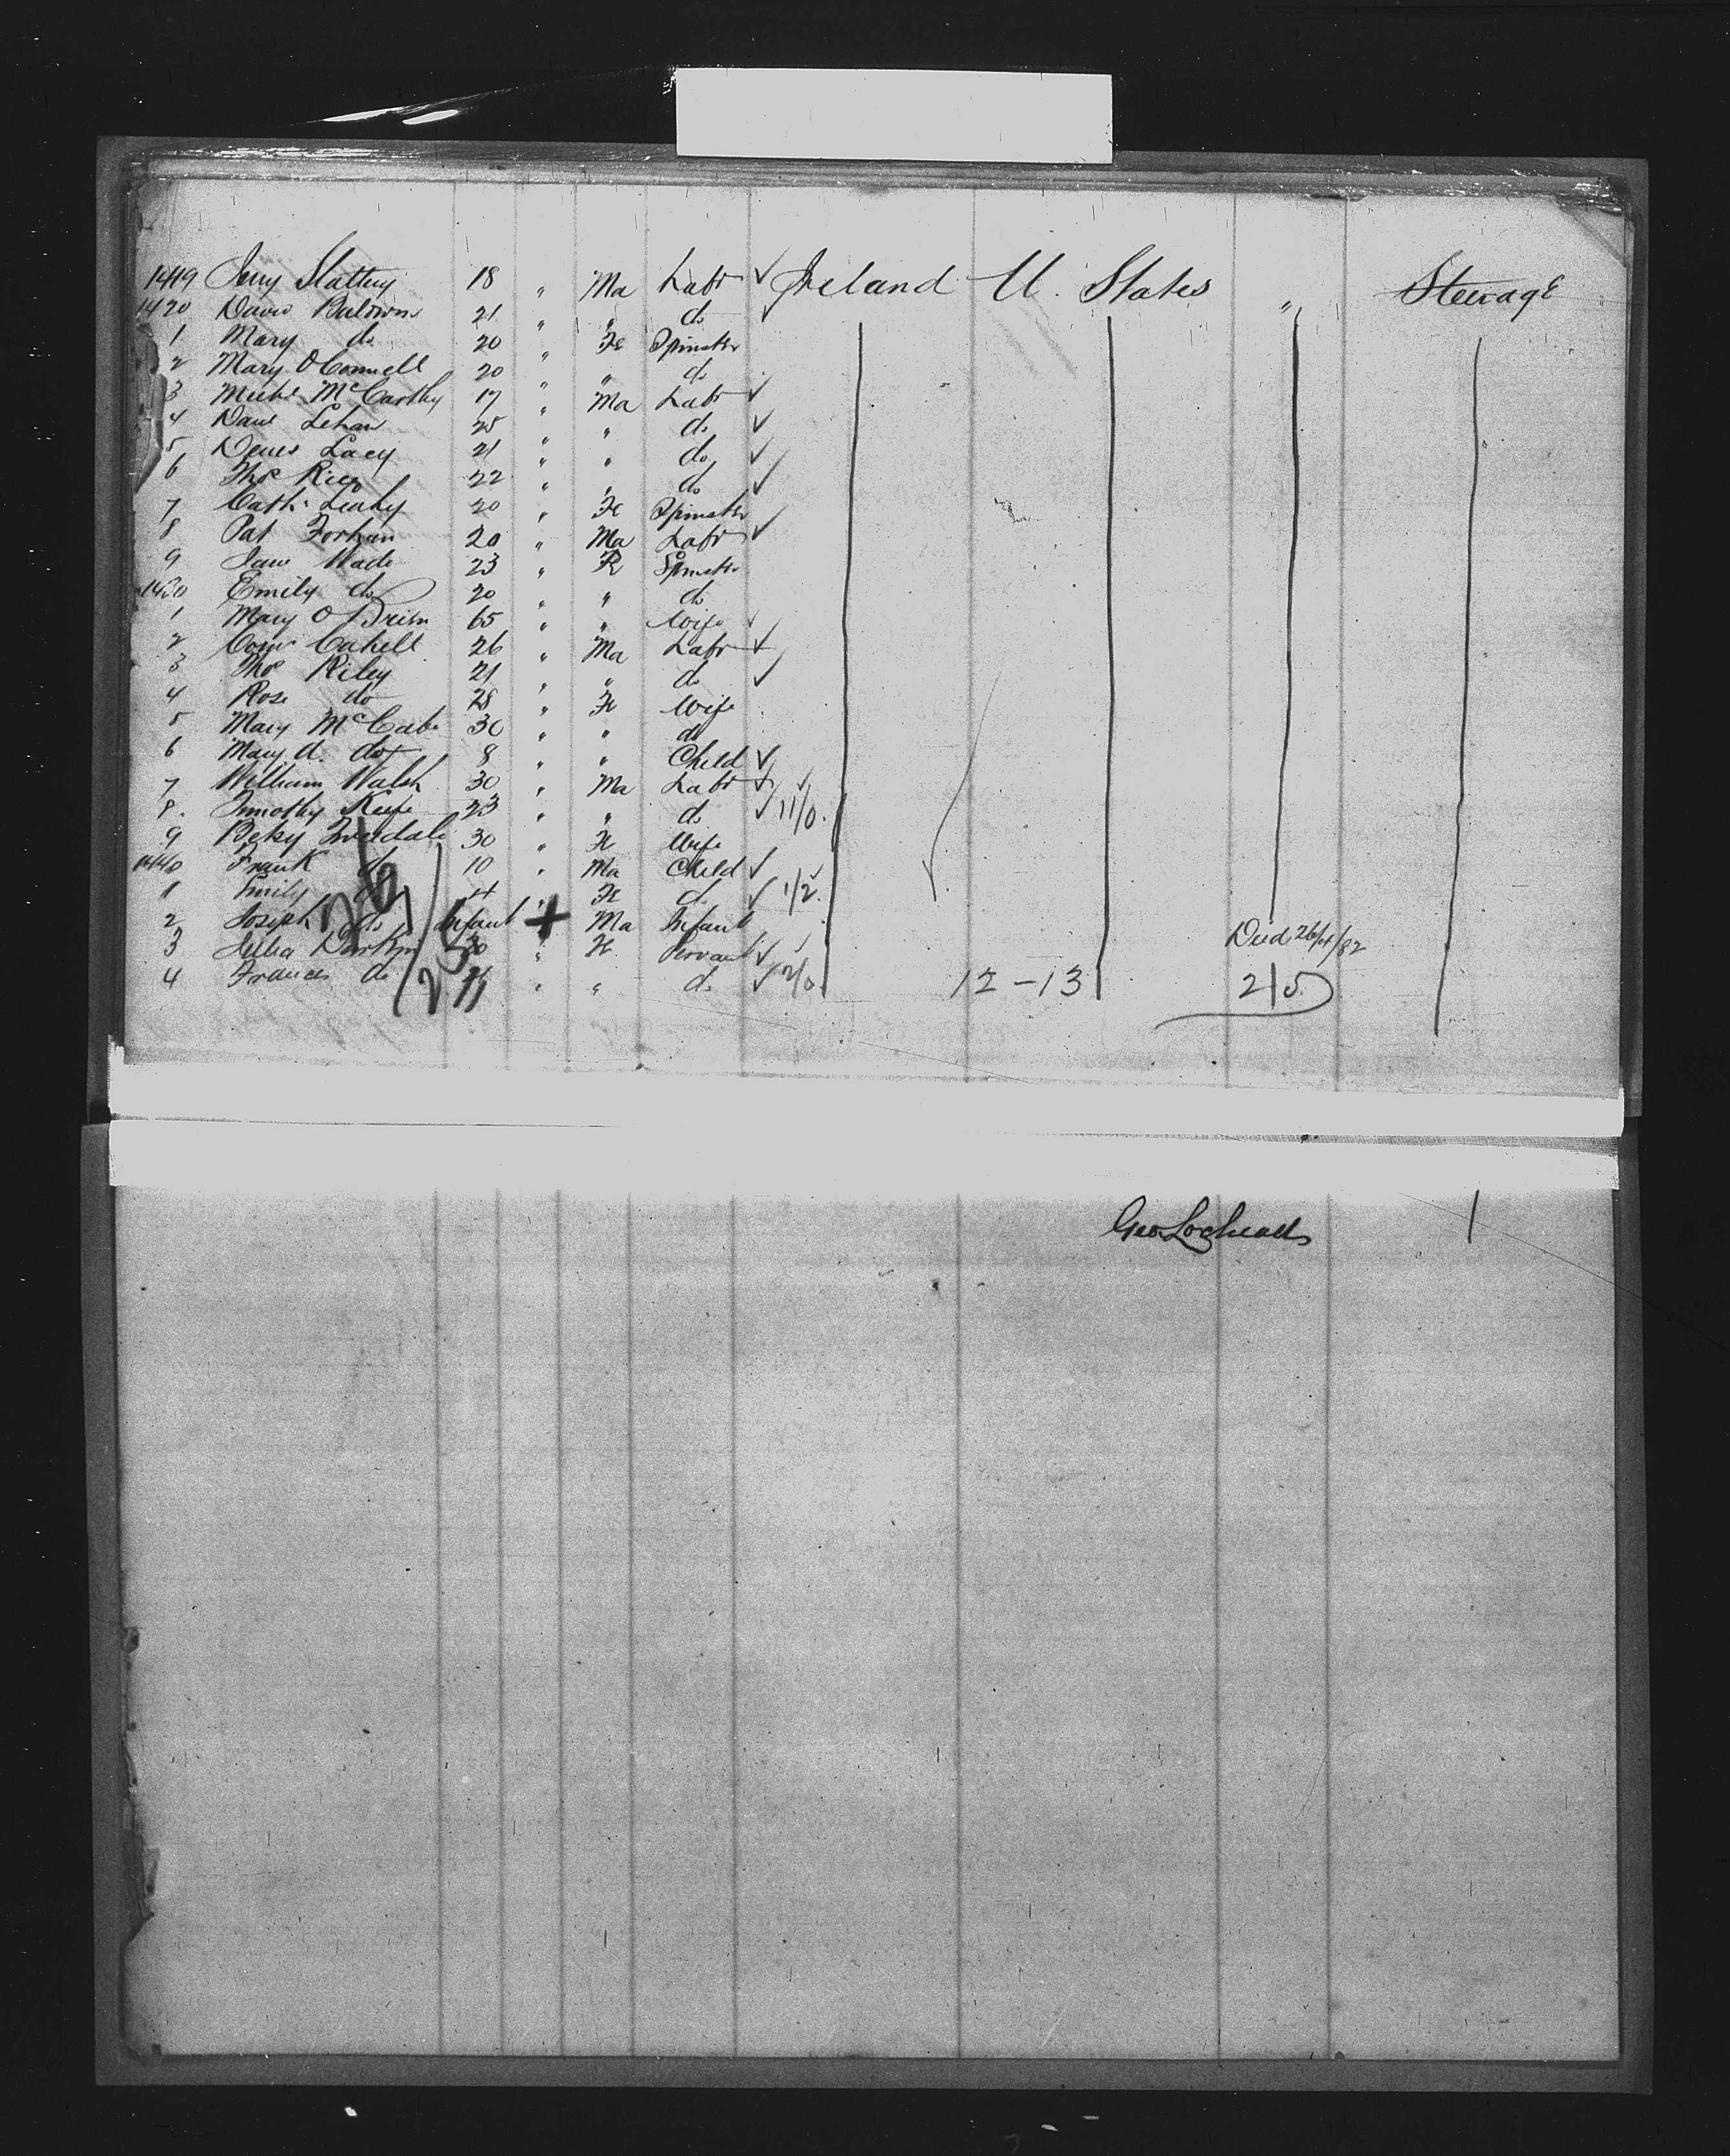 1419 Jerry Slattery 18 " Ma Labr ✓ Ireland U. States " Steerage
1420 David Baldwin 21 " " do ✓
1 Mary do 20 " Fe Spinster
2 Mary O'Connell 20 " " do
3 Michl McCarthy 17 " Ma Labr ✓
4 Danl Lehan 25 " " do ✓
5 Denis Lacy 21 " " do ✓
6 Thos 22 " " do ✓
7 Cath Leahy 20 " Fe Spinster
8 Pat 20 " Ma Labr ✓
9 Jane Wade 23 " Fe Spinster
1430 Emily do 20 " " do
1 Mary O 65 " " Wife ✓
2 Cahill 26 " Ma Labr ✓
3 Thos Riley 21 " " do ✓
4 Rose do 28 " Fe Wife
5 Mary McCabe 30 " " do
6 Mary A. do 8 " " Child ✓
7 William Walsh 30 " Ma Labr ✓
8 Timothy Keefe 23 " " do ✓ 11/0
9 Beky 30 " Fe Wife
1440 Frank do 10 " Ma Child ✓
1 Emily do " Fe do ✓ 1/2
2 Joseph do Infant + Ma Infant Died 26/4/82
3 Julia Durkin 30 " Fe Servant ✓
4 Frances do " " do ✓ 2/0 12-13 2/5
Geo Lochead